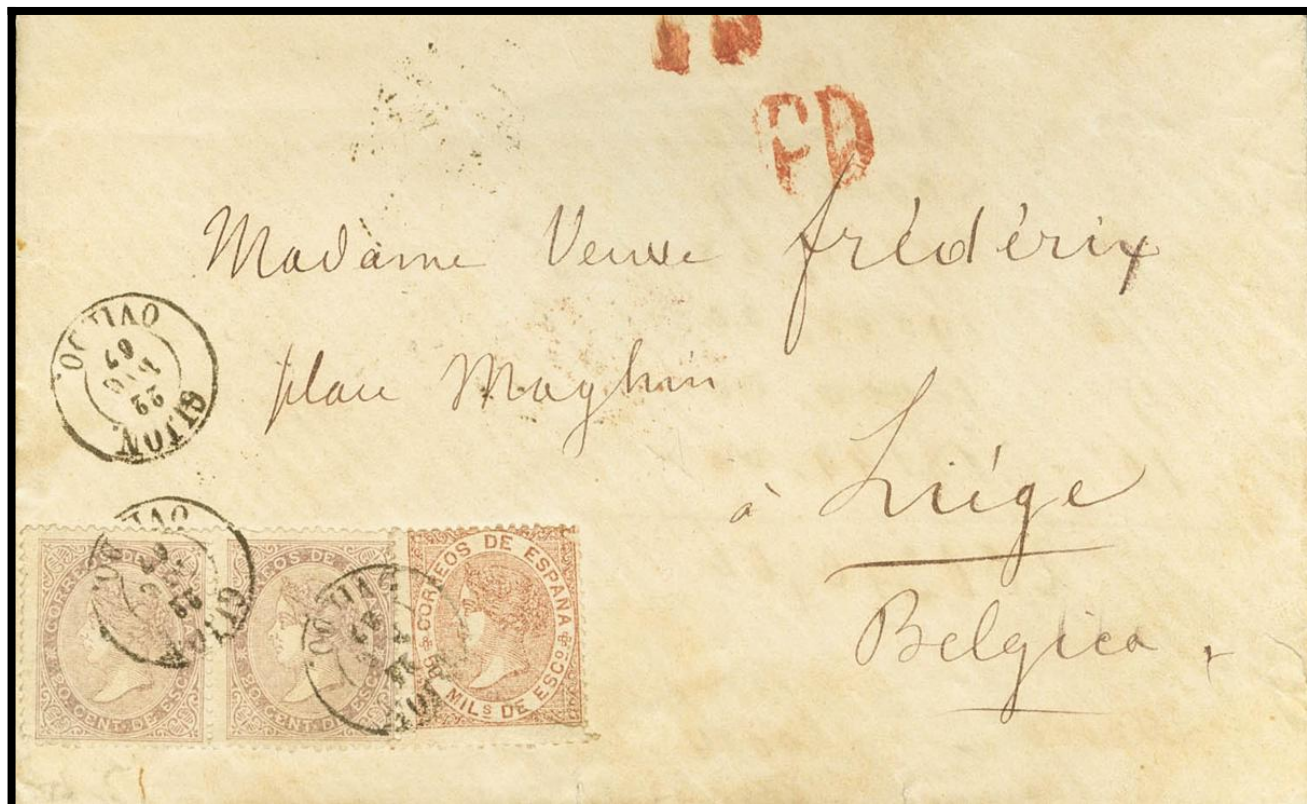 PD
Madame Veuve Frédérix
place Maghin
à Liége
Belgica
GIJON. OVIEDO.
22 AGO 67
CORREOS DE
20 CENT. DE ESCO
CORREOS DE
20 CENT. DE ESCO
CORREOS DE ESPAÑA
MILS DE ESCO